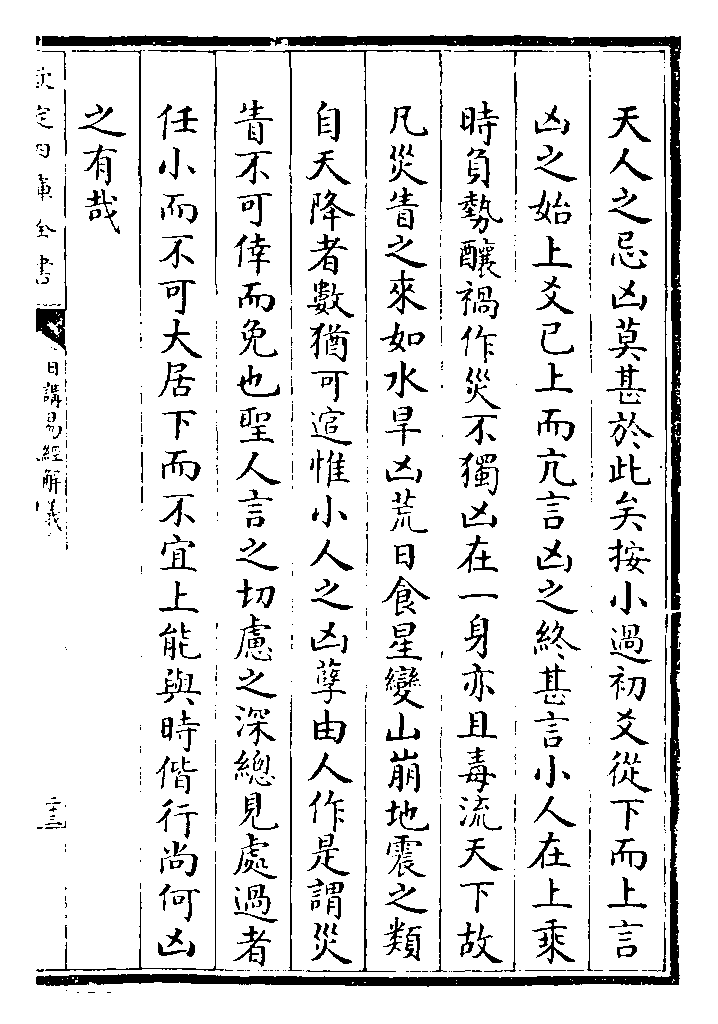 天人之忌凶莫甚於此矣按小過初爻從下而上言
凶之始上爻已上而亢言凶之終甚言小人在上乘
時負勢釀禍作災不獨凶在一身亦且毒流天下故
凡災眚之來如水旱凶荒日食星變山崩地震之類
自天降者數猶可逭惟小人之凶孽由人作是謂災
眚不可倖而免也聖人言之切慮之深總見處過者
任小而不可大居下而不宜上能與時偕行尚何凶
之有哉
欽定四庫全書
日講易經解義
二十三